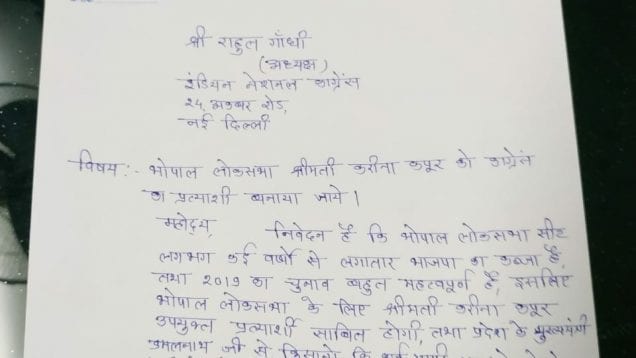 श्री राहुल गाँधी
(अध्यक्ष)
इंडियन नेशनल कांग्रेस
24, अकबर रोड,
नई दिल्ली
विषय :- भोपाल लोकसभा श्रीमती करीना कपूर को कांग्रेस
का प्रत्याशी बनाया जाये।
महोदय,
निवेदन है कि भोपाल लोकसभा सीट
लगभग कई वर्षो से लगातार भाजपा का कब्जा है,
तथा 2019 का चुनाव बहुत महत्वपूर्ण है, इसलिए
भोपाल लोकसभा के लिए श्रीमती करीना कपूर
उपयुक्त प्रत्याशी साबित होगी, तथा प्रदेश के मुख्यमंत्री
कमलनाथ जी ने किसानो कि